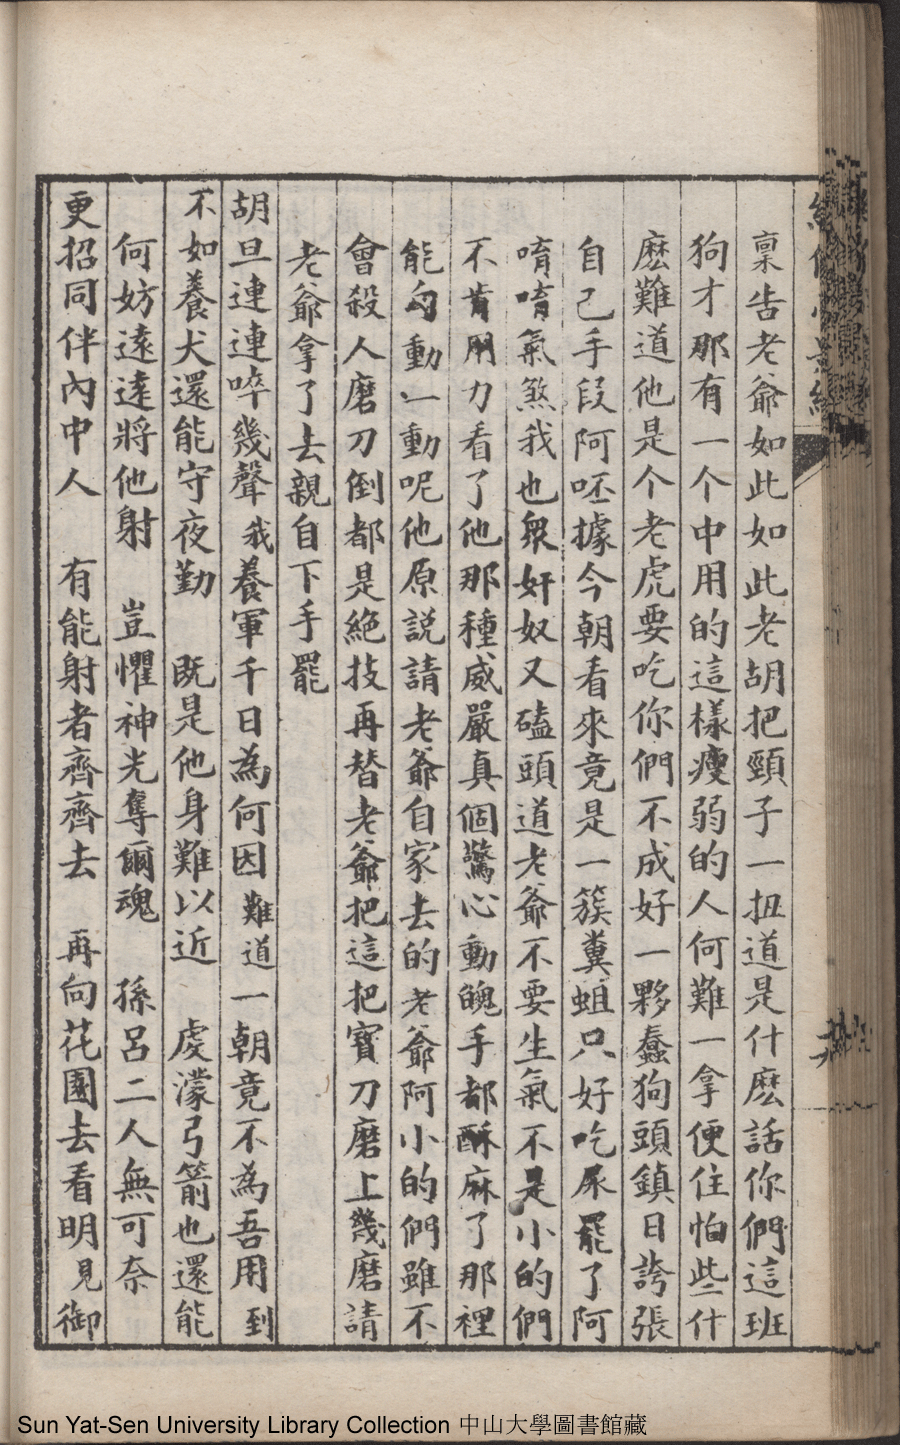 稟告老爺如此如此老胡把頸子一扭道是什麽話你們這班
狗才那有一个中用的這樣瘦弱的人何難一拿便住怕些什
麽難道他是个老虎要吃你們不成好一夥蠢狗頭鎮日誇張
自己手段阿呸據今朝看來竟是一簇糞蛆只好吃屎罷了阿
唷唷氣煞我也衆奸奴又磕頭道老爺不要生氣不是小的們
不肯用力看了他那種威嚴真個驚心動魄手都酥麻了那裡
能勾動一動呢他原説請老爺自家去的老爺阿小的們雖不
會殺人磨刀倒都是絕技再替老爺把這把寶刀磨上幾磨請
老爺拿了去親自下手罷
胡旦連連啐幾聲 我養軍千日為何因 難道一朝竟不為吾用 到
不如養犬還能守夜勤 既是他身難以近 虔濛弓箭也還能
何妨遠遠將他射 豈懼神光奪爾魂 孫呂二人無可奈
更招同伴內中人 有能射者齊齊去 再向花園去看明 見御
Sun Yat-Sen University Library Collection 中山大學圖書館藏